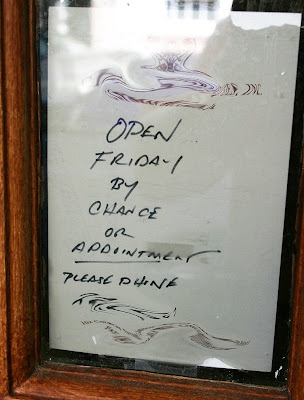 OPEN
FRIDAY
BY
CHANCE
OR
APPOINTMENT
PLEASE PHONE